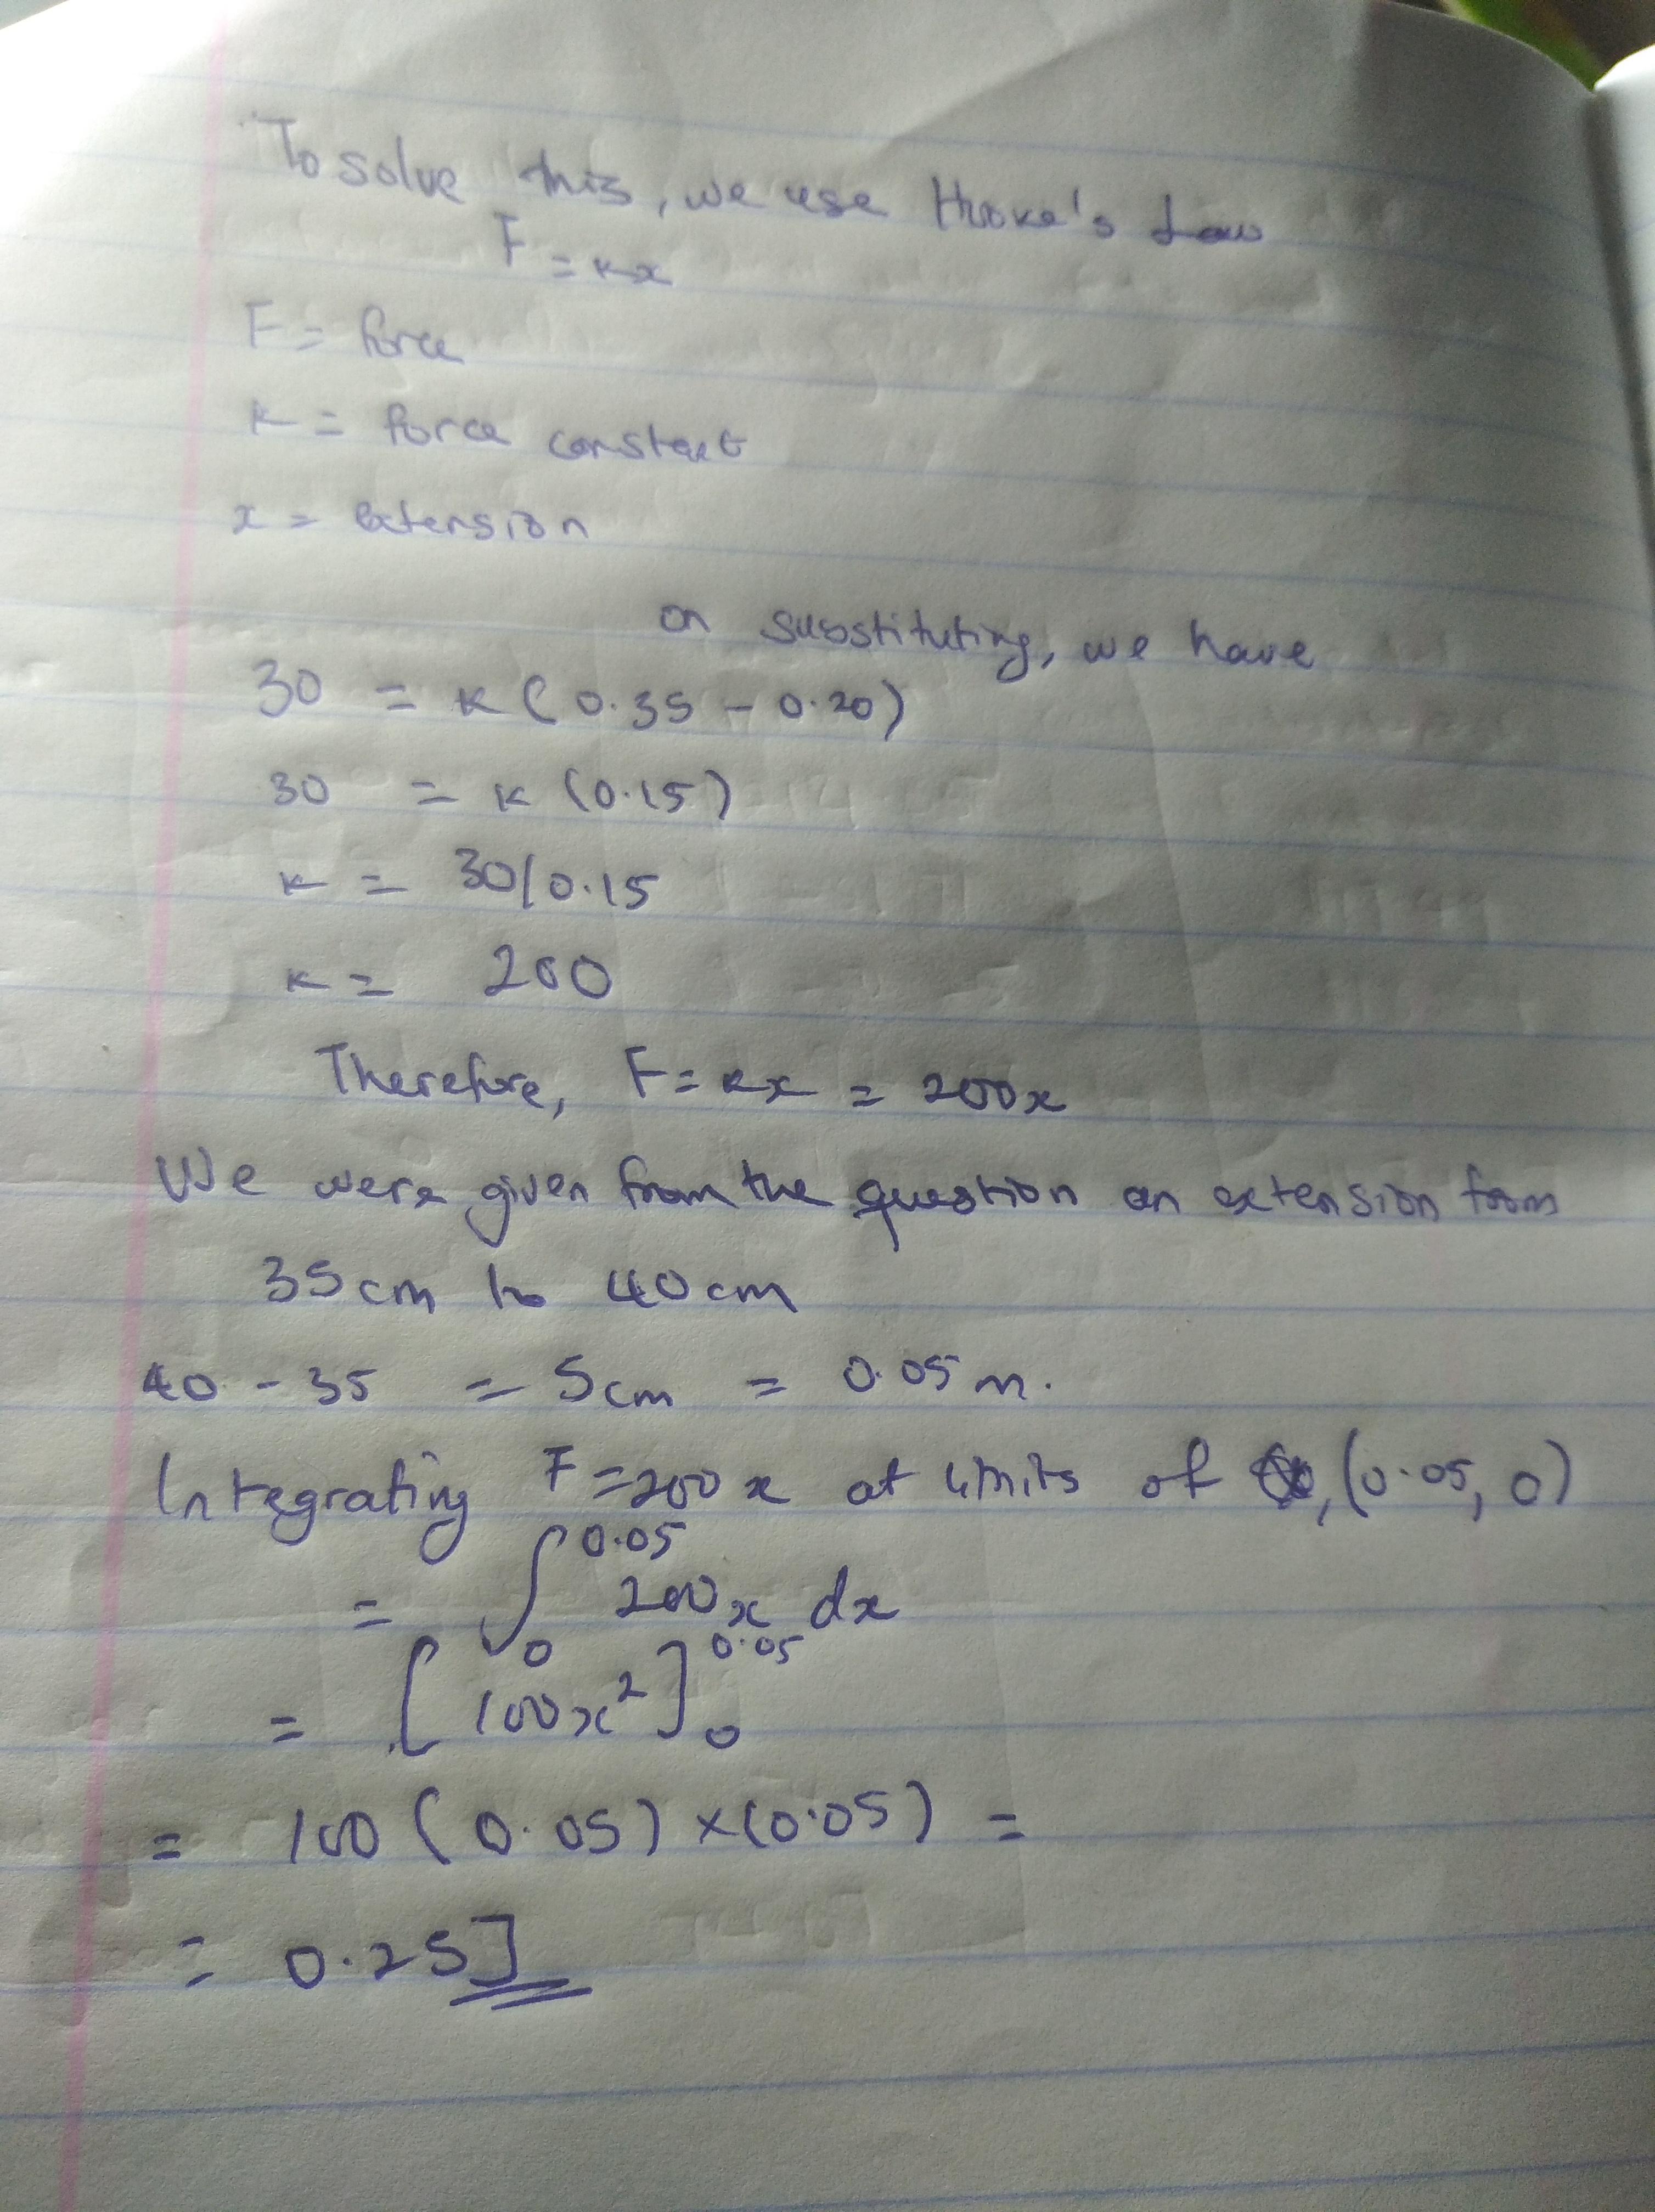 To solve this, we use Hooke's Law
F = kx
F = force
k = force constant
x = extension
on substituting, we have
30 = k (0.35 - 0.20)
30 = k (0.15)
k = 30/0.15
k = 200
Therefore, F = kx = 200x
We were given from the question an extension from
35cm to 40cm
40 - 35 = 5cm = 0.05m.
Integrating F = 200x at limits of , (0.05, 0)
= ∫₀^0.05 200x dx
= [100x²]₀^0.05
= 100 (0.05) × (0.05) =
= 0.25J